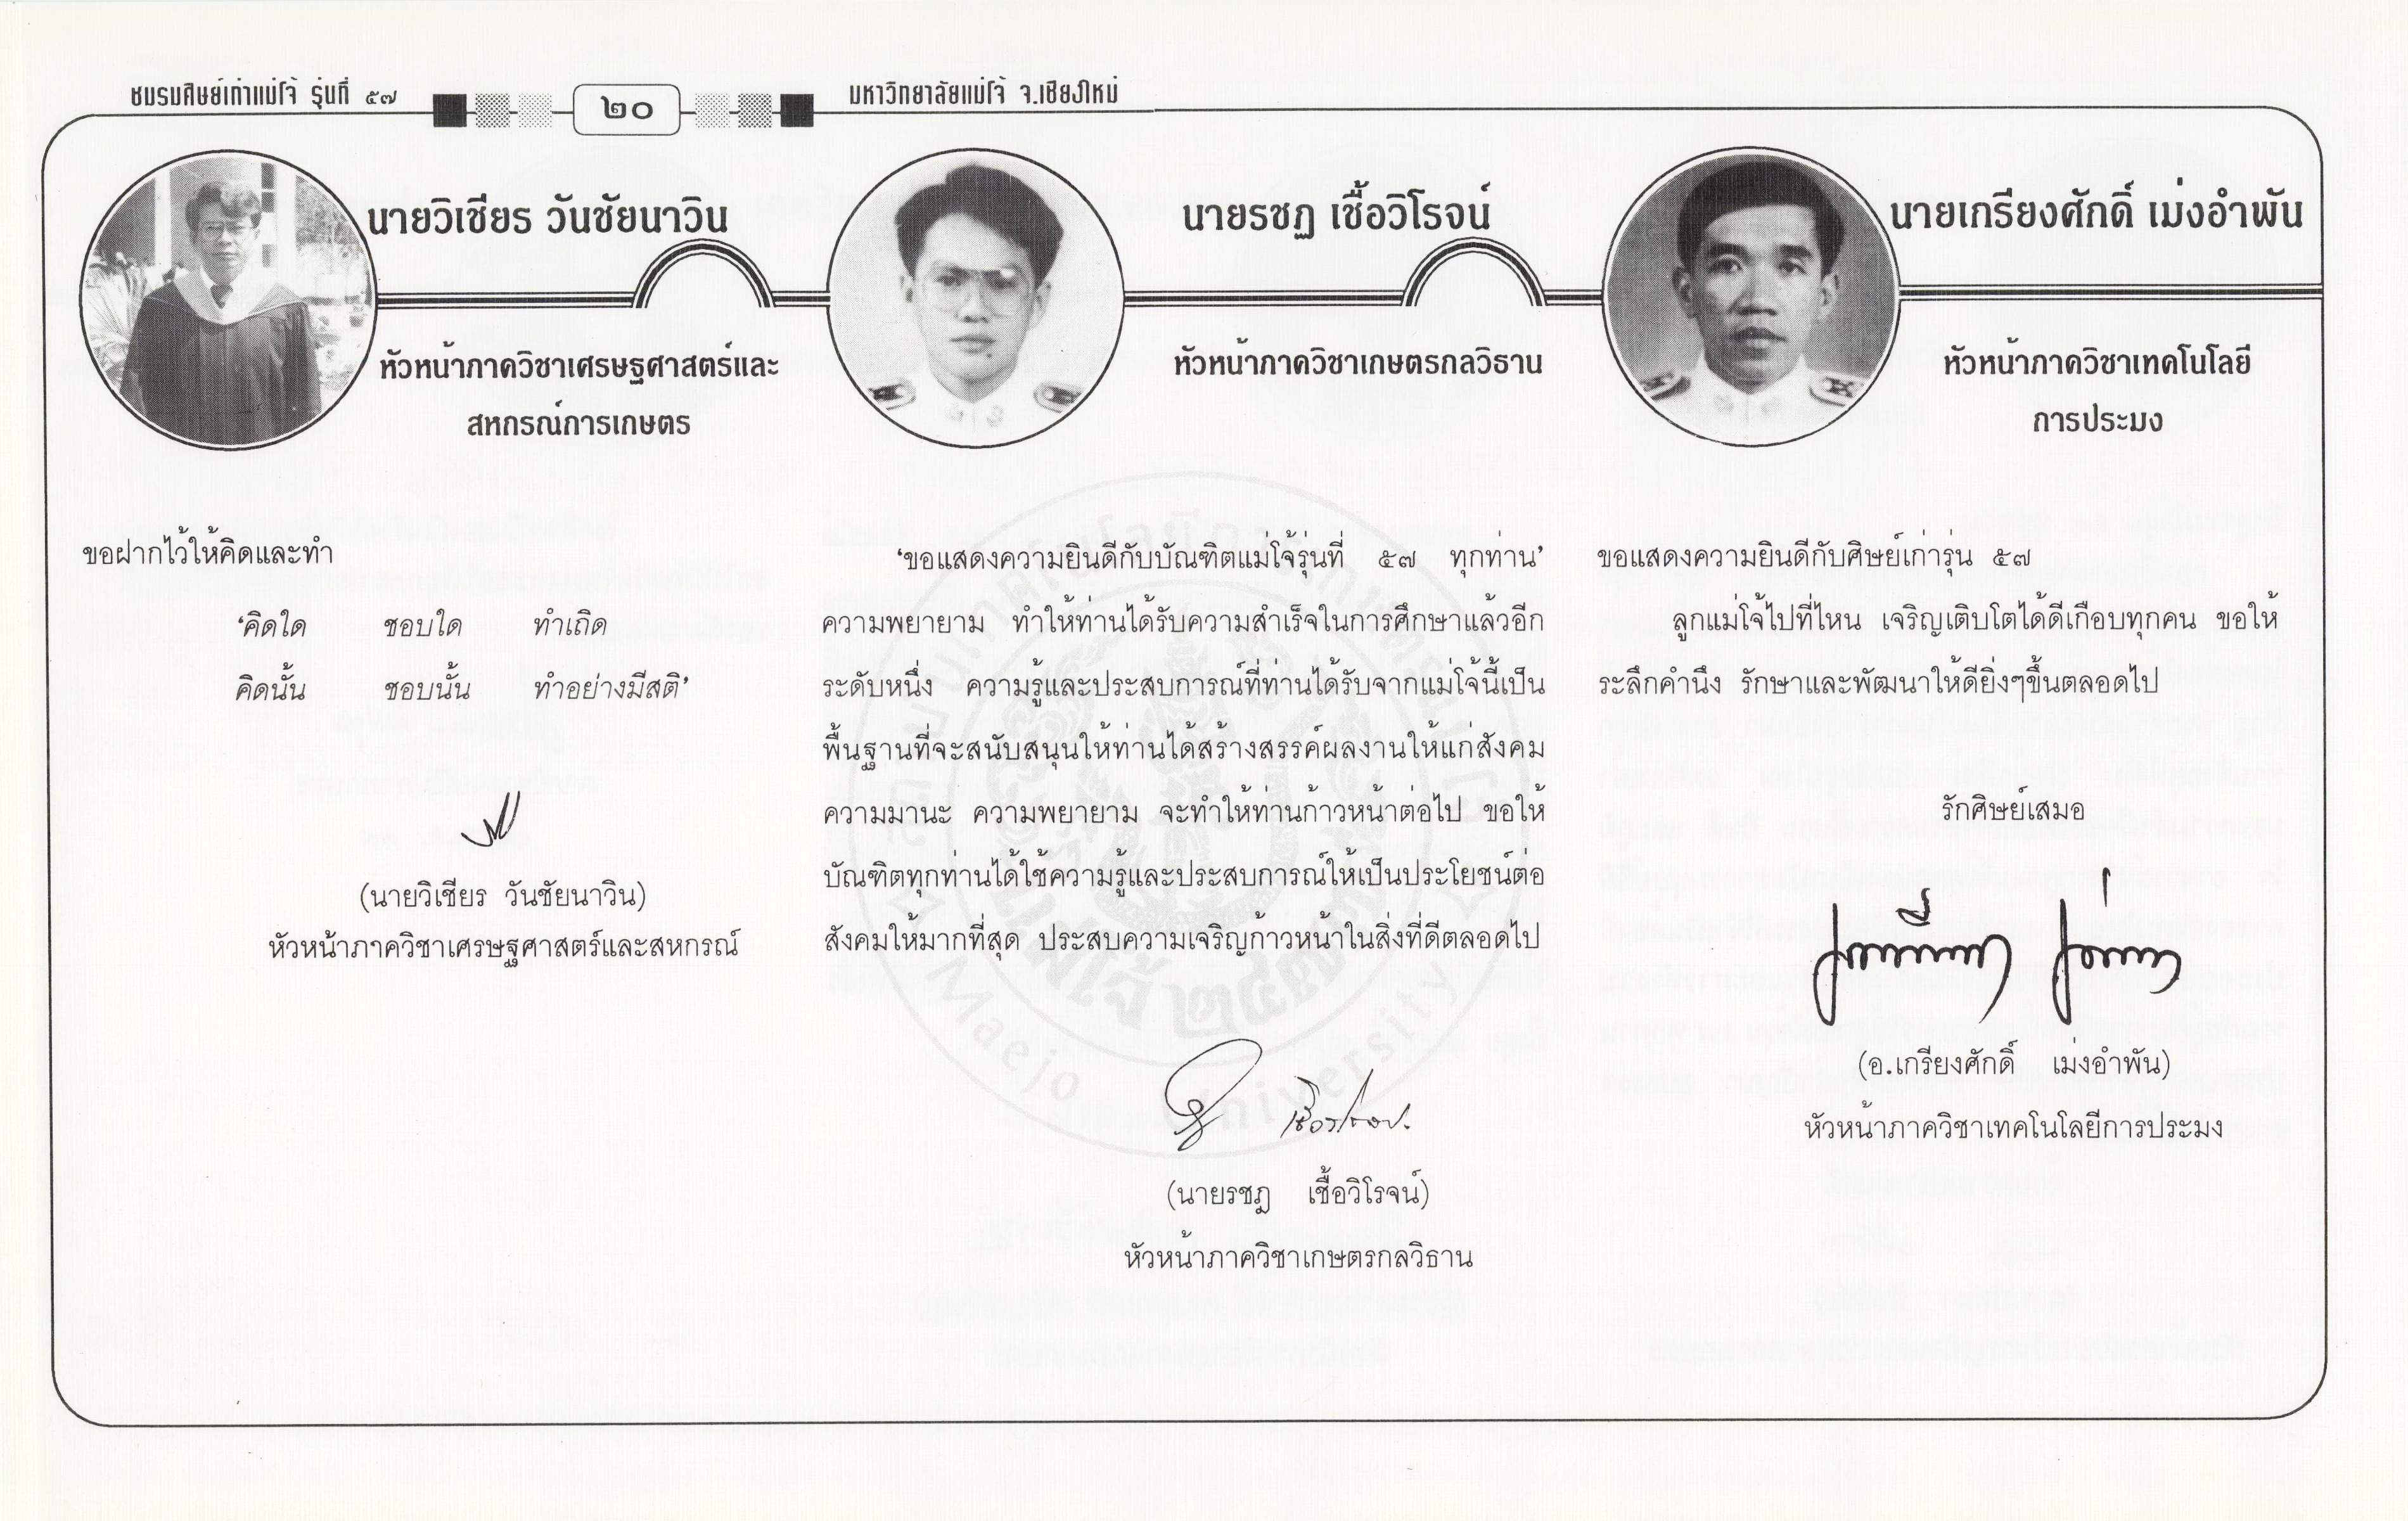 ชมรมศิษย์เก่าแม่โจ้ รุ่นที่ ๕๗
๒๐
มหาวิทยาลัยแม่โจ้ จ.เชียงใหม่
นายวิเชียร วันชัยนาวิน
หัวหน้าภาควิชาเศรษฐศาสตร์และ
สหกรณ์การเกษตร
ขอฝากไว้ให้คิดและทำ
‘คิดใด ชอบใด ทำเถิด
คิดนั้น ชอบนั้น ทำอย่างมีสติ’
(นายวิเชียร วันชัยนาวิน)
หัวหน้าภาควิชาเศรษฐศาสตร์และสหกรณ์
นายรชฏ เชื้อวิโรจน์
หัวหน้าภาควิชาเกษตรกลวิธาน
‘ขอแสดงความยินดีกับบัณฑิตแม่โจ้รุ่นที่ ๕๗ ทุกท่าน’
ความพยายาม ทำให้ท่านได้รับความสำเร็จในการศึกษาแล้วอีก
ระดับหนึ่ง ความรู้และประสบการณ์ที่ท่านได้รับจากแม่โจ้นี้เป็น
พื้นฐานที่จะสนับสนุนให้ท่านได้สร้างสรรค์ผลงานให้แก่สังคม
ความมานะ ความพยายาม จะทำให้ท่านก้าวหน้าต่อไป ขอให้
บัณฑิตทุกท่านได้ใช้ความรู้และประสบการณ์ให้เป็นประโยชน์ต่อ
สังคมให้มากที่สุด ประสบความเจริญก้าวหน้าในสิ่งที่ดีตลอดไป
(นายรชฏ เชื้อวิโรจน์)
หัวหน้าภาควิชาเกษตรกลวิธาน
นายเกรียงศักดิ์ เม่งอำพัน
หัวหน้าภาควิชาเทคโนโลยี
การประมง
ขอแสดงความยินดีกับศิษย์เก่ารุ่น ๕๗
ลูกแม่โจ้ไปที่ไหน เจริญเติบโตได้ดีเกือบทุกคน ขอให้
ระลึกคำนึง รักษาและพัฒนาให้ดียิ่งๆขึ้นตลอดไป
รักศิษย์เสมอ
(อ.เกรียงศักดิ์ เม่งอำพัน)
หัวหน้าภาควิชาเทคโนโลยีการประมง
Maejo University